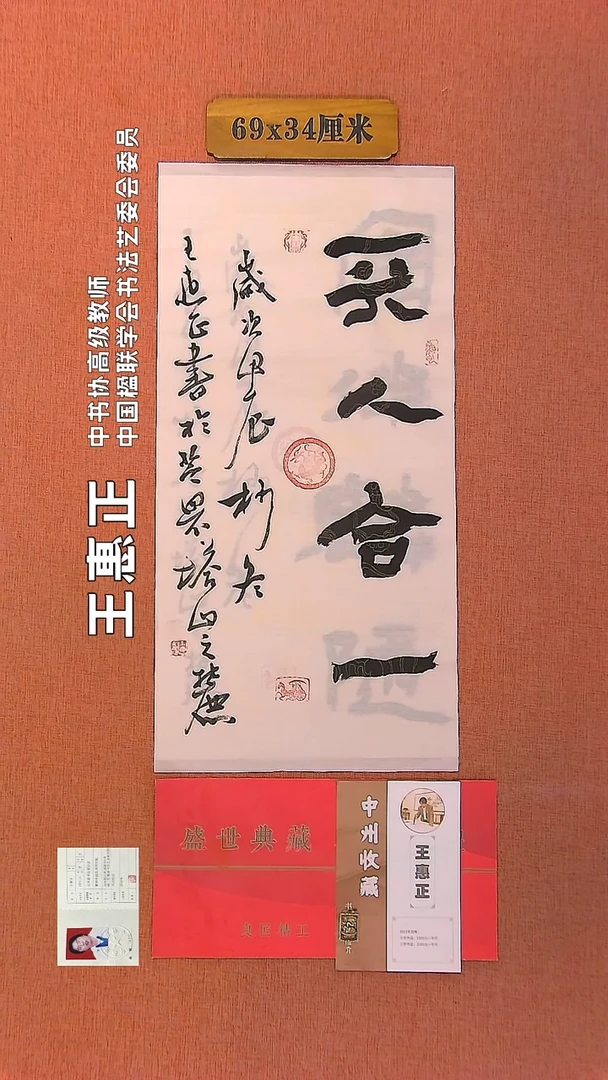 69x34厘米
天人合一
歲次甲辰杪冬
王惠正書於芝罘塔山之麓
王惠正
中书协高级教师
中国楹联学会书法艺委会委员
盛世典藏
中州收藏
王惠正